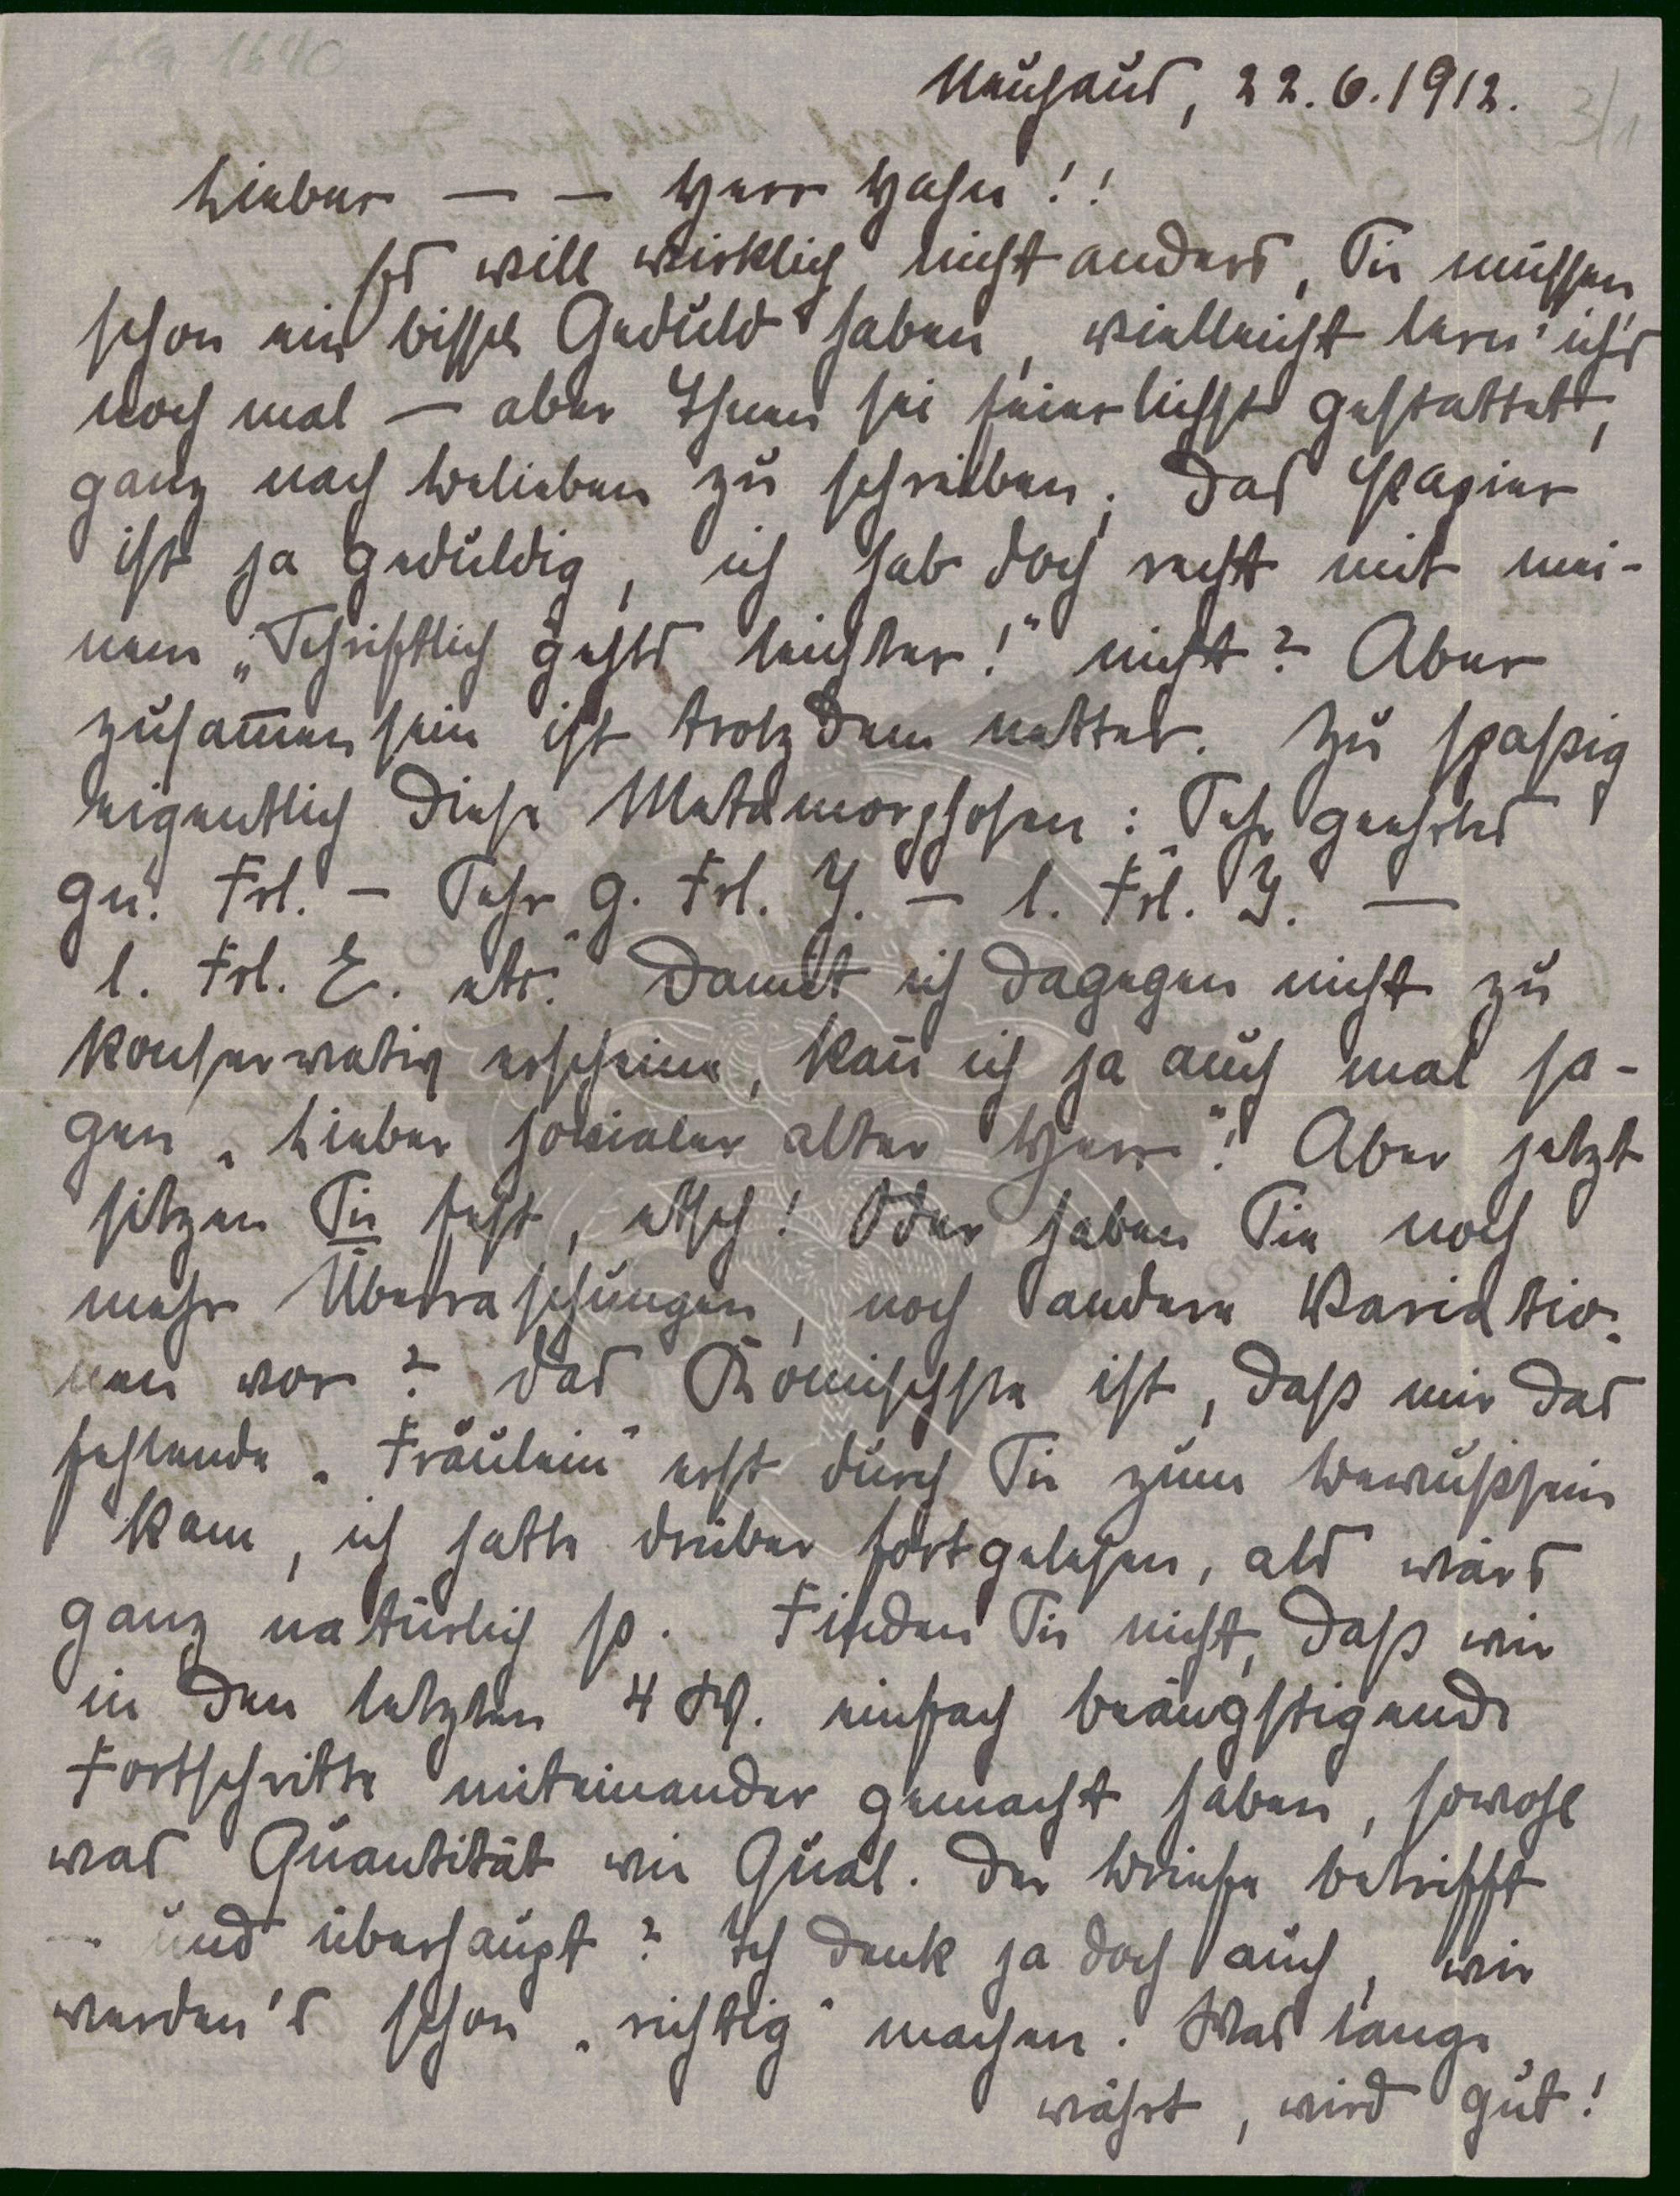 Neuhaus, 22.6.1912.
3/1
Lieber — — Herr Hahn!!
Es will wirklich nicht anders, Sie müssen
schon ein bissel Geduld haben, vielleicht lern' ich's
noch mal — aber Ihnen sei feierlichst gestattet,
ganz nach Belieben zu schreiben; das Papier
ist ja geduldig, ich hab doch recht mit mei-
nem „Schriftlich gehts leichter!" nicht? Aber
zusam̅en sein ist trotzdem netter. Zu spaßig
eigentlich diese Metamorphosen: „Sehr geehrtes
gn. Frl. – Sehr g. Frl. J. – l. Frl. J. —
l. Frl. E. etc." Damit ich dagegen nicht zu
konservativ erscheine, kan̅ ich ja auch mal sa-
gen „Lieber jovialer alter Herr"! Aber jetzt
sitzen Sie fest, etsch! Oder haben Sie noch
mehr Überraschungen, noch andere Variatio-
nen vor? Das Komischste ist, daß mir das
fehlende „Fräulein" erst durch Sie zum Bewußtsein
kam, ich hatte drüber fortgelesen, als wärs
ganz natürlich so. Finden Sie nicht, daß wir
in den letzten 4 W. einfach beängstigende
Fortschritte miteinander gemacht haben, sowohl
was Quantität wie Qual. der Briefe betrifft
— und überhaupt? Ich denk ja doch auch, wir
werden's schon „richtig" machen. Was lange
währt, wird gut!